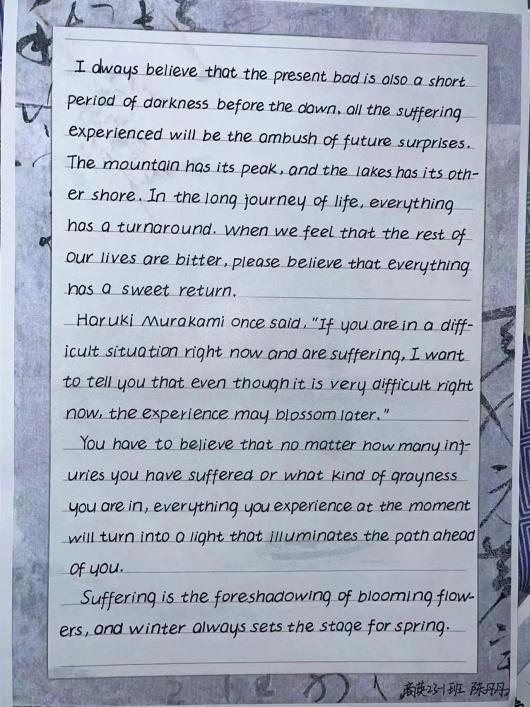 I always believe that the present bad is also a short
period of darkness before the dawn, all the suffering
experienced will be the ambush of future surprises.
The mountain has its peak, and the lakes has its oth-
er shore. In the long journey of life, everything
has a turnaround. When we feel that the rest of
our lives are bitter, please believe that everything
has a sweet return.
Haruki Murakami once said, "If you are in a diff-
icult situation right now and are suffering, I want
to tell you that even though it is very difficult right
now, the experience may blossom later."
You have to believe that no matter how many inj-
uries you have suffered or what kind of grayness
you are in, everything you experience at the moment
will turn into a light that illuminates the path ahead
of you.
Suffering is the foreshadowing of blooming flow-
ers, and winter always sets the stage for spring.
商英23-1班 陈丹丹